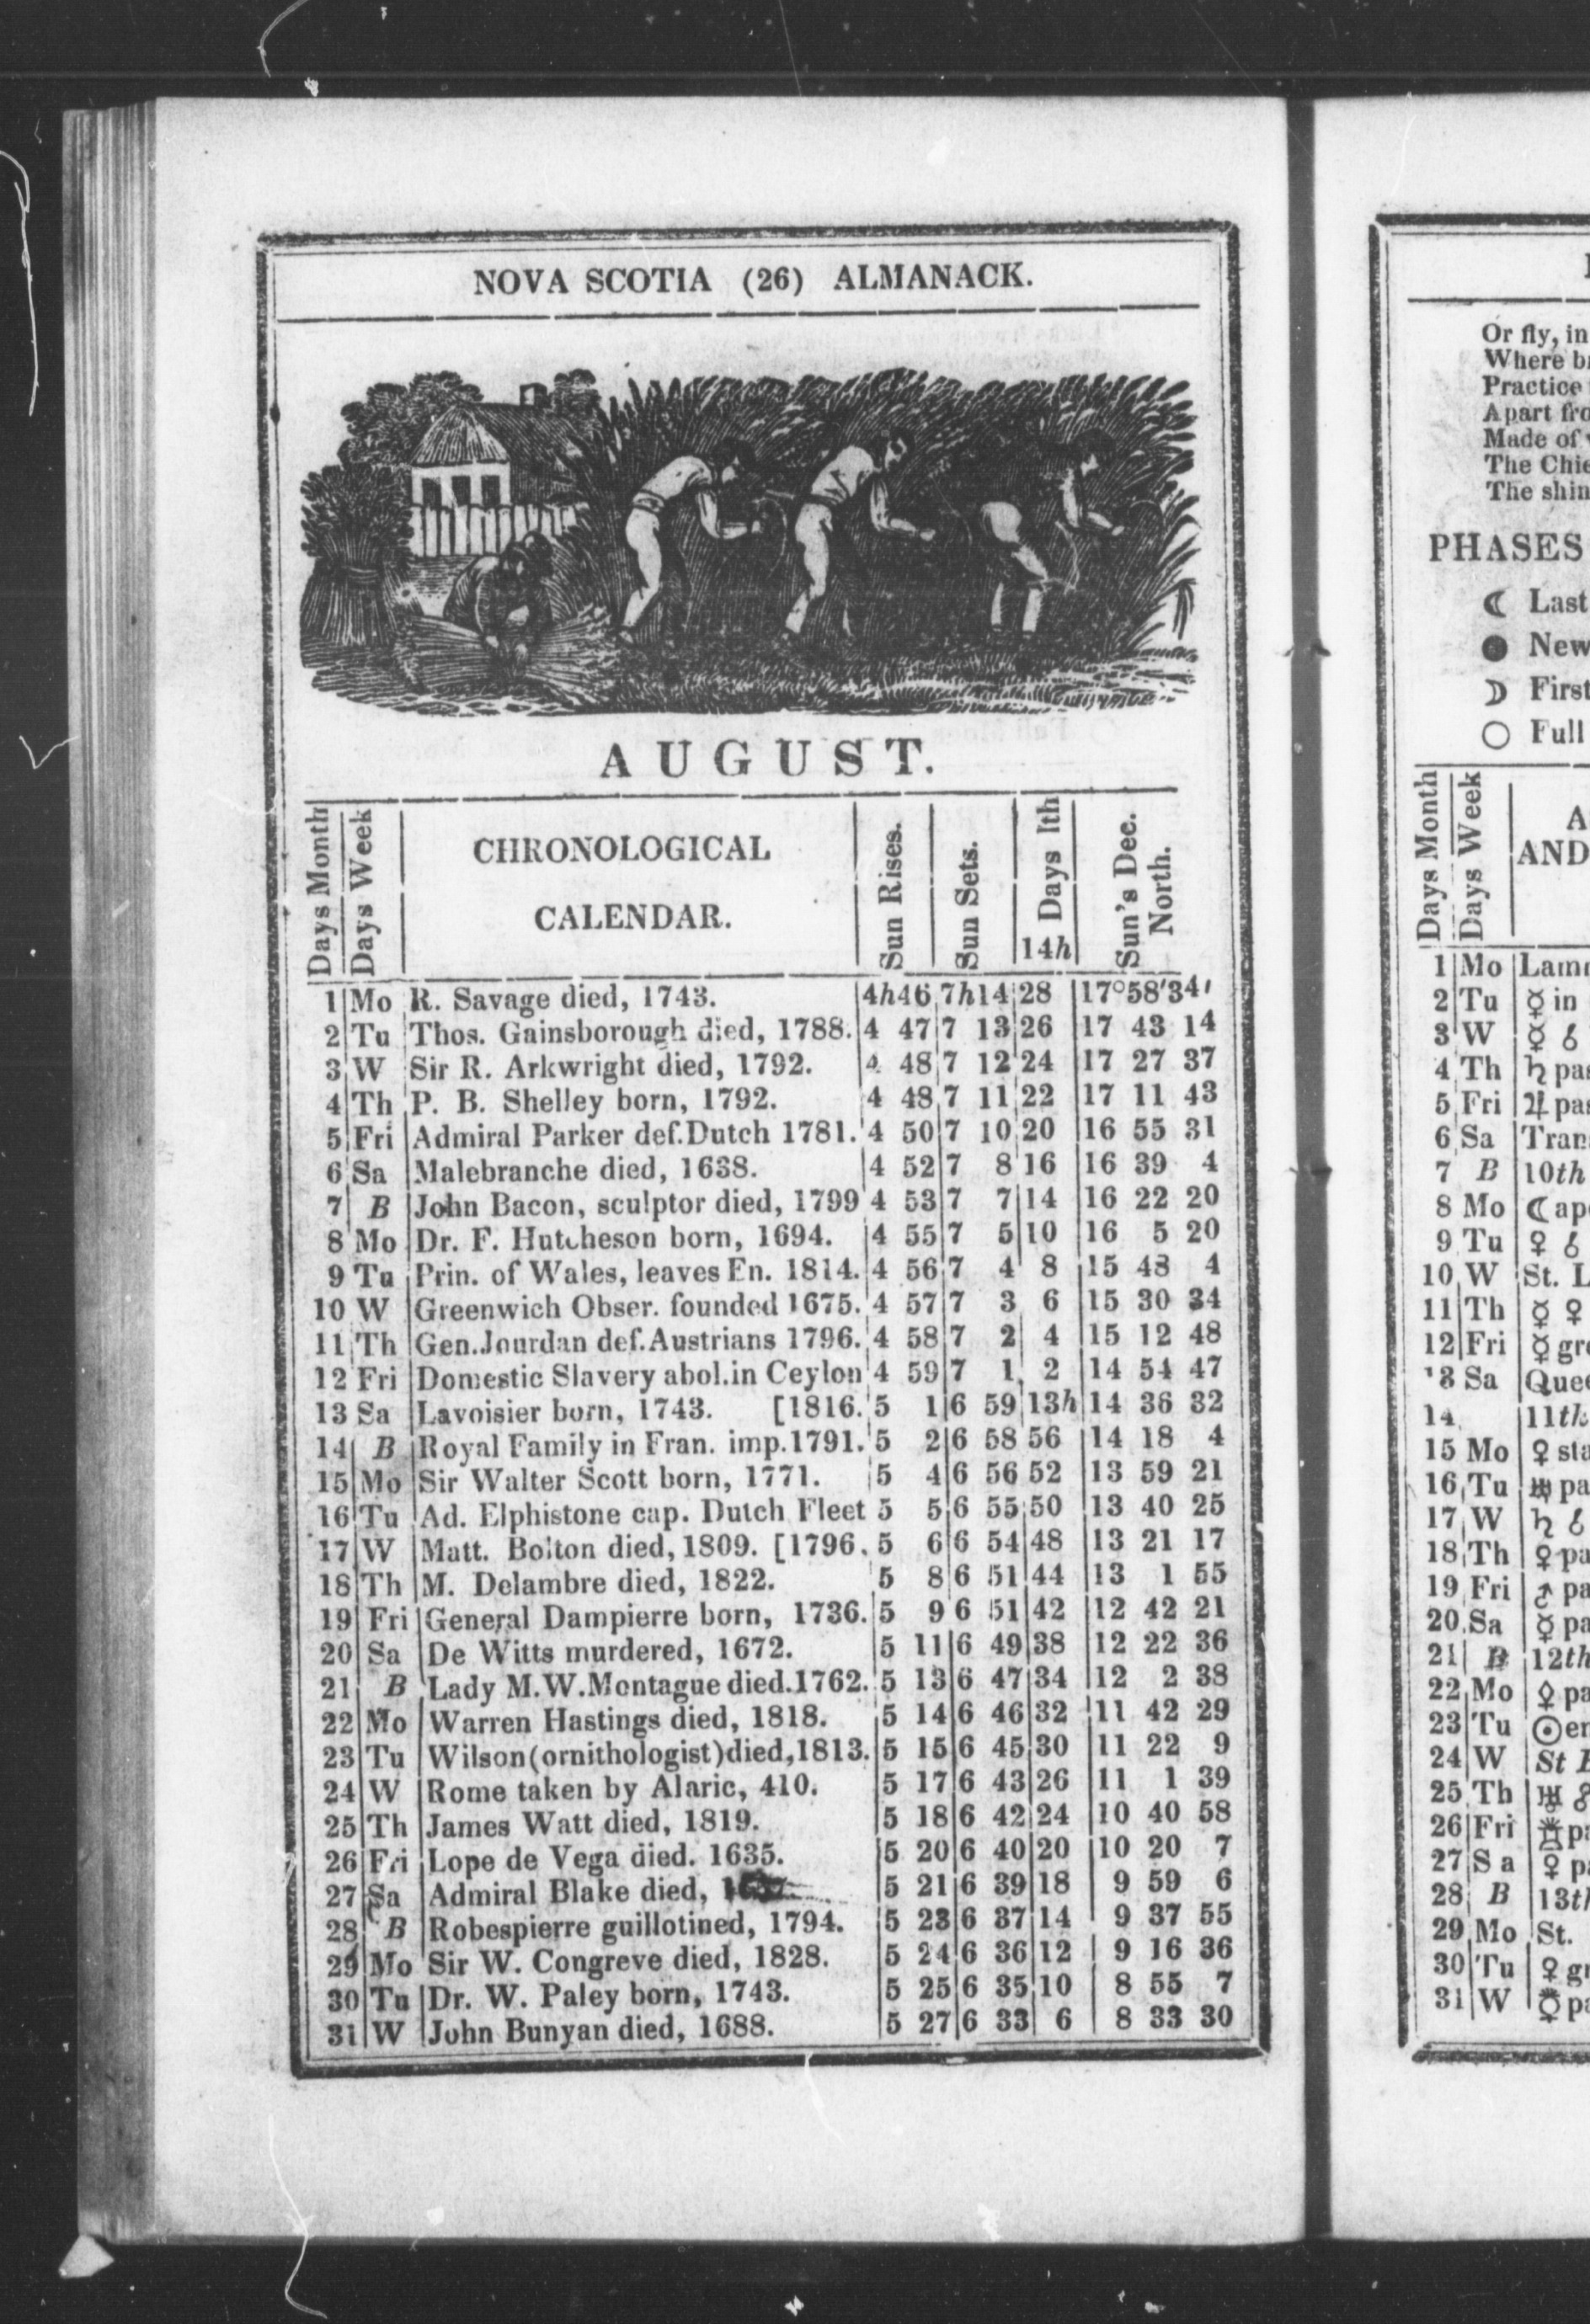 NOVA SCOTIA (26) ALMANACK.
AUGUST.
Days Month
Days Week
CHRONOLOGICAL
CALENDAR.
Sun Rises.
Sun Sets.
Days lth
14h
Sun's Dec.
North.
1 Mo R. Savage died, 1743. 4h46 7h14 28 17°58'34'
2 Tu Thos. Gainsborough died, 1788. 4 47 7 13 26 17 43 14
3 W Sir R. Arkwright died, 1792. 4 48 7 12 24 17 27 37
4 Th P. B. Shelley born, 1792. 4 48 7 11 22 17 11 43
5 Fri Admiral Parker def.Dutch 1781. 4 50 7 10 20 16 55 31
6 Sa Malebranche died, 1638. 4 52 7 8 16 16 39 4
7 B John Bacon, sculptor died, 1799 4 53 7 7 14 16 22 20
8 Mo Dr. F. Hutcheson born, 1694. 4 55 7 5 10 16 5 20
9 Tu Prin. of Wales, leaves En. 1814. 4 56 7 4 8 15 48 4
10 W Greenwich Obser. founded 1675. 4 57 7 3 6 15 30 34
11 Th Gen.Jourdan def.Austrians 1796. 4 58 7 2 4 15 12 48
12 Fri Domestic Slavery abol.in Ceylon 4 59 7 1 2 14 54 47
13 Sa Lavoisier born, 1743. [1816. 5 1 6 59 13h 14 36 32
14 B Royal Family in Fran. imp.1791. 5 2 6 58 56 14 18 4
15 Mo Sir Walter Scott born, 1771. 5 4 6 56 52 13 59 21
16 Tu Ad. Elphistone cap. Dutch Fleet 5 5 6 55 50 13 40 25
17 W Matt. Bolton died, 1809. [1796. 5 6 6 54 48 13 21 17
18 Th M. Delambre died, 1822. 5 8 6 51 44 13 1 55
19 Fri General Dampierre born, 1736. 5 9 6 51 42 12 42 21
20 Sa De Witts murdered, 1672. 5 11 6 49 38 12 22 36
21 B Lady M.W.Montague died.1762. 5 13 6 47 34 12 2 38
22 Mo Warren Hastings died, 1818. 5 14 6 46 32 11 42 29
23 Tu Wilson(ornithologist)died,1813. 5 15 6 45 30 11 22 9
24 W Rome taken by Alaric, 410. 5 17 6 43 26 11 1 39
25 Th James Watt died, 1819. 5 18 6 42 24 10 40 58
26 Fri Lope de Vega died. 1635. 5 20 6 40 20 10 20 7
27 Sa Admiral Blake died, 5 21 6 39 18 9 59 6
28 B Robespierre guillotined, 1794. 5 23 6 37 14 9 37 55
29 Mo Sir W. Congreve died, 1828. 5 24 6 36 12 9 16 36
30 Tu Dr. W. Paley born, 1743. 5 25 6 35 10 8 55 7
31 W John Bunyan died, 1688. 5 27 6 33 6 8 33 30
Or fly, in
Where
Practice
Apart
Made of
The
The
PHASES
☾ Last
● New
☽ First
○ Full
Days Month
Days Week
AND
1 Mo
2 Tu ☿ in
3 W ☿ ☌
4 Th ♄
5 Fri ♃
6 Sa
7 B 10th
8 Mo ☾
9 Tu ♀ ☌
10 W St.
11 Th ☿ ♀
12 Fri ☿
13 Sa
14 11th
15 Mo ♀
16 Tu ♅
17 W ♄ ☌
18 Th ♀
19 Fri ♂
20 Sa ☿
21 B 12th
22 Mo
23 Tu ☉
24 W St
25 Th ♅
26 Fri
27 Sa ♀
28 B 13th
29 Mo St.
30 Tu ♀
31 W